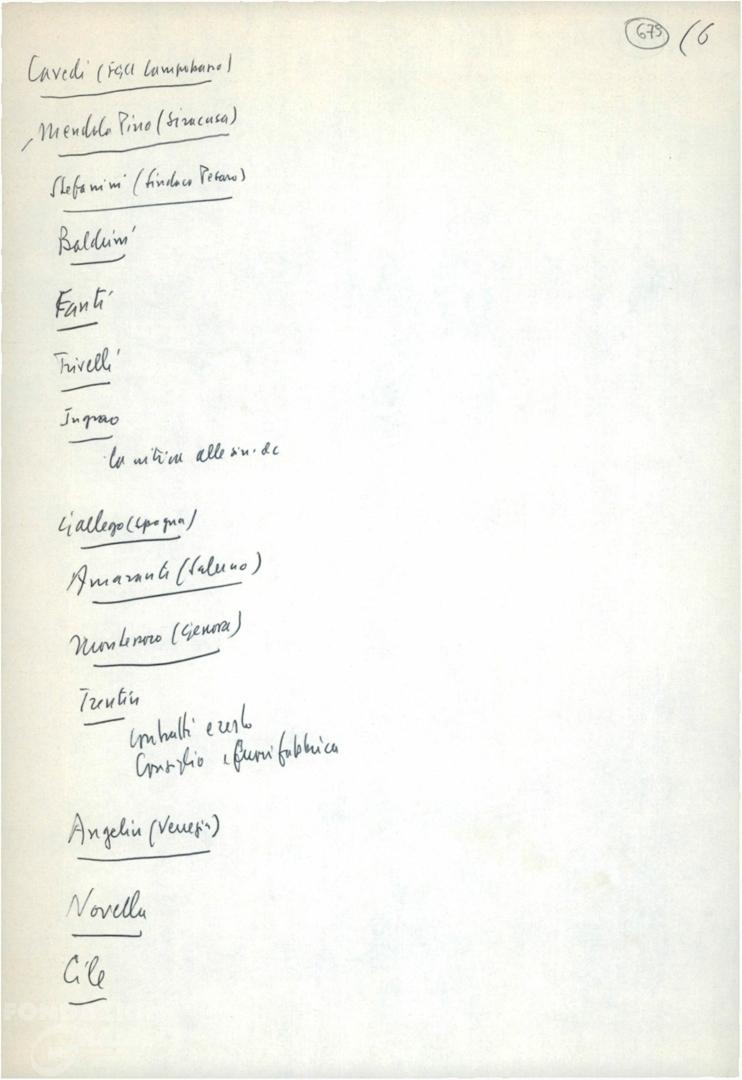 679 (6
Cavedi (FGCI Campobasso)
Mendola Pino (Siracusa)
Stefanini (Sindaco Pesaro)
Baldini
Fanti
Trivelli
Ingrao
la critica alle sin. dc
Gallego (Spagna)
Amarante (Salerno)
Montessoro (Genova)
Trentin
Contratti e resto
Consiglio e fuori fabbrica
Angelin (Venezia)
Novella
Cile
FONDAZIONE